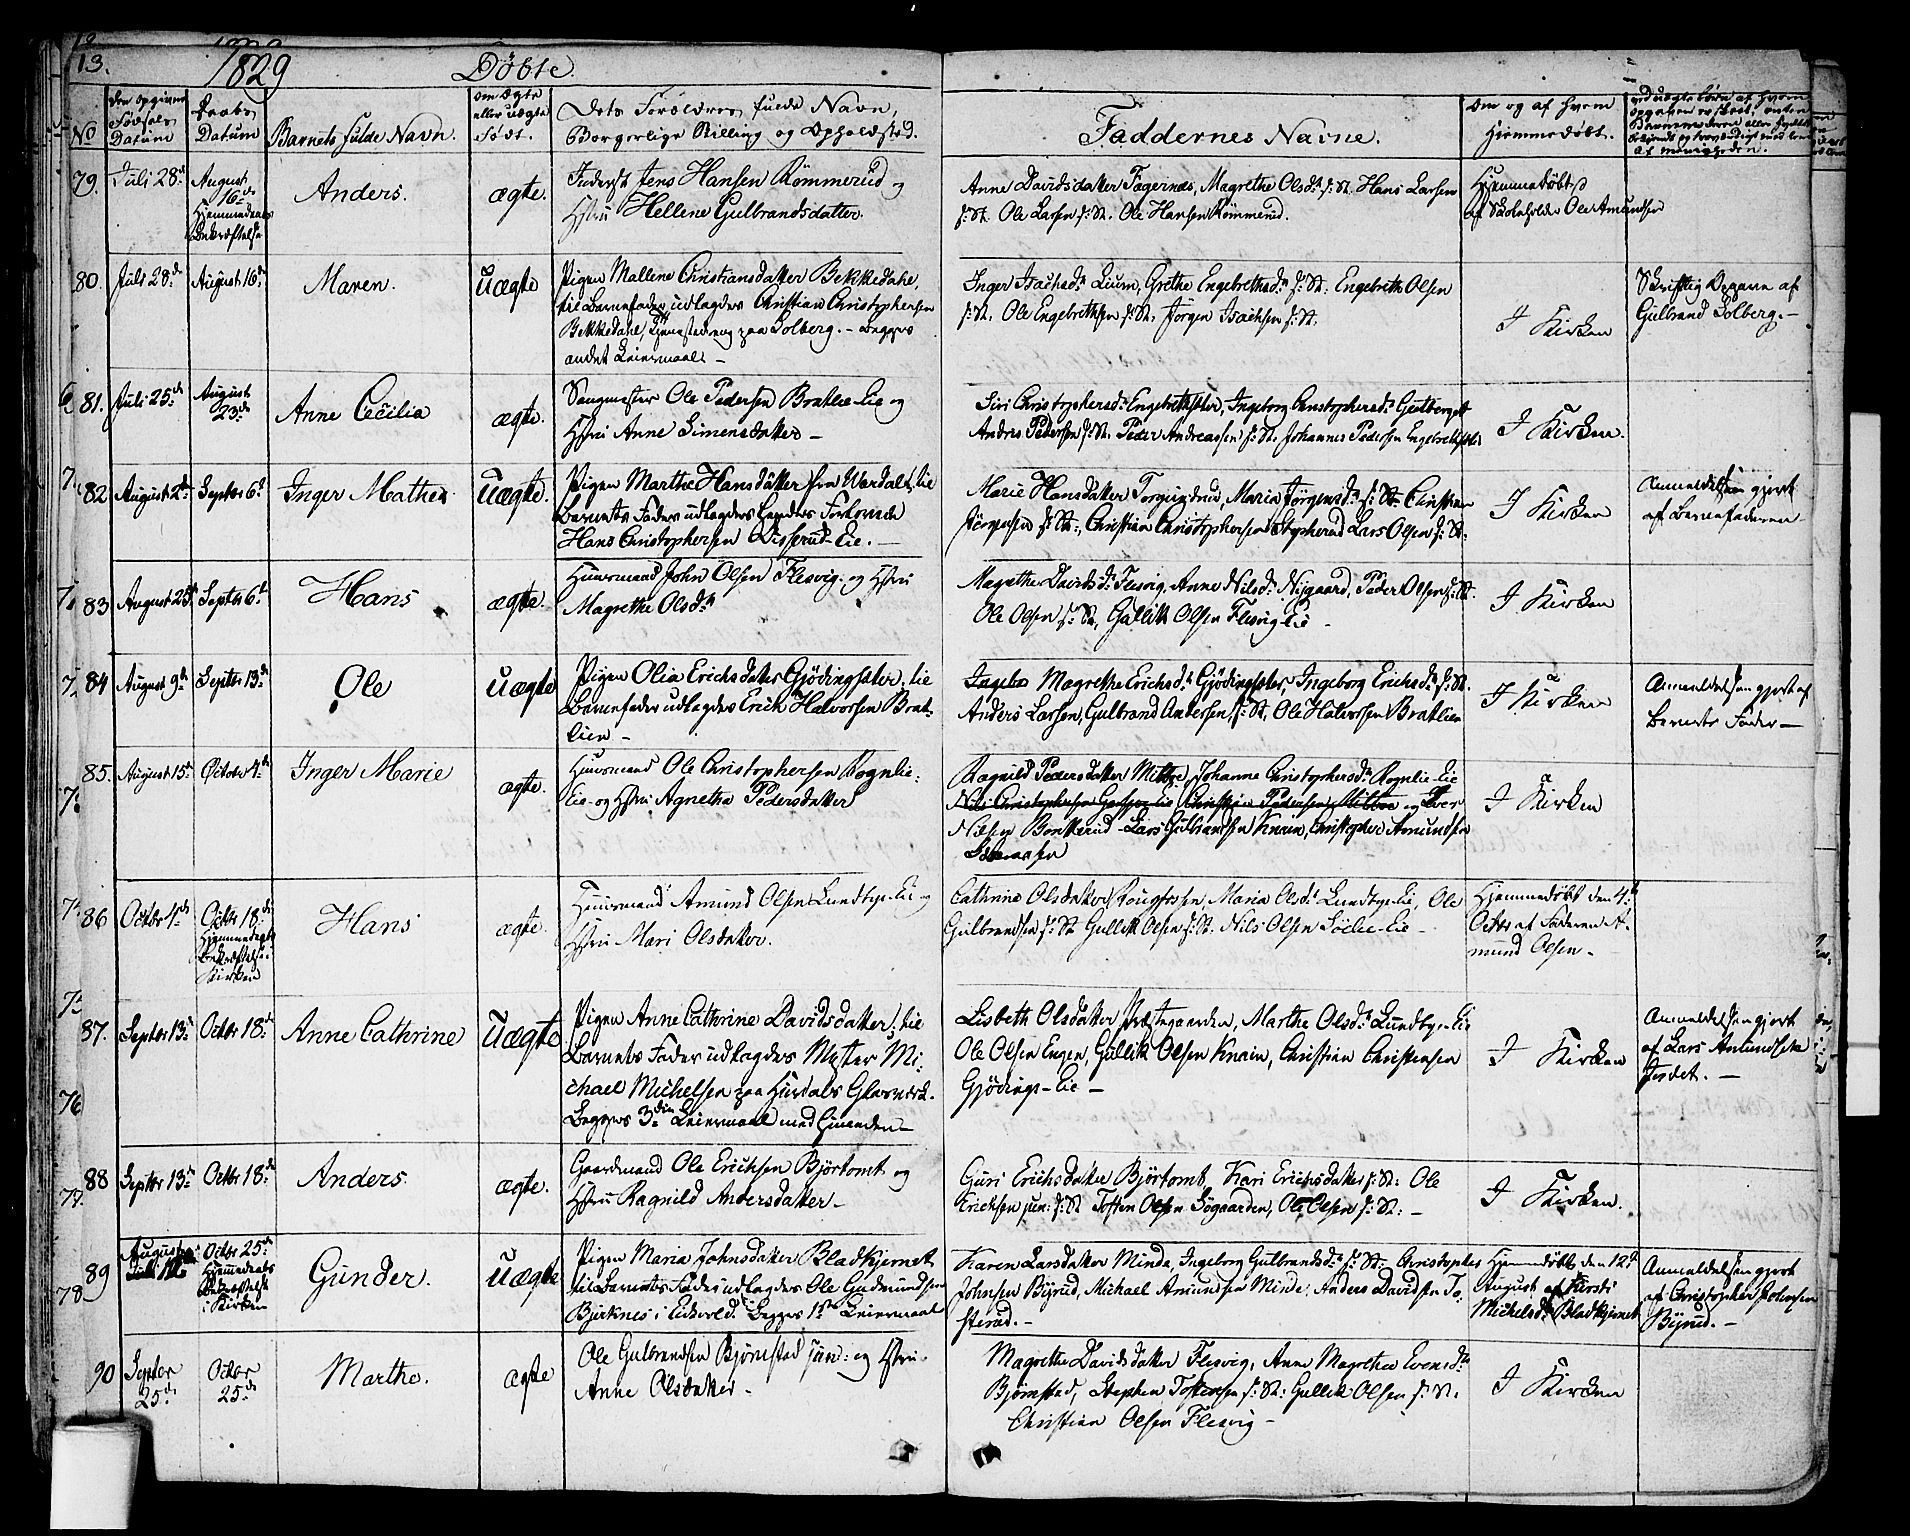 13.
1829
Döbte
No
den opgivne Födsels Datum
Daabs Datum
Barnets fulde Navn.
om Ægte eller uægte Födt.
Dets Forældres fulde Navn,
Borgerlige Stilling og Opholdssted.
Faddernes Navne.
om og af hvem
Hjemmedöbt.
79. Juli 28de
August 16de
Hjemmedaabs
Bekræftelse
Anders.
ægte.
Inderst Jens Hansen Römmerud og
Hstru Hellene Gulbrandsdatter.
Anne Davidsdatter Fagernæs, Magrethe Olsdr s: St. Hans Larsen
s: St. Ole Larsen s: St. Ole Hansen Römmerud.
Hjemmedöbt
af Skoleholder Ole Amundsen
80. Juli 28de
August 16de
Maren.
Uægte
Pigen Mallene Christiansdatter Bekkedahl,
til Barnefader udlagdes Christian Christophersen
Bekkedahl, Tjenestedreng paa Solberg. – begges
andet Leiermaal –
Inger Isachsdr Lium, Grethe Engebrethsdr s: St: Engebreth Olsen
s: St. Ole Engebrethsen s: St. Jörgen Isachsen s: St.
I Kirken
Skriftlig Opgave af
Gulbrand Solberg. –
81. Juli 25de
August 23de
Anne Cecilia
ægte.
Ole Pedersen Bratlie-Eie og
Hstru Anne Simensdatter –
Siri Christophersdr Ingeborg Christophersdr
Andres Pedersen s: St. Peder Andreassen s: St. Johannes Pedersen
I Kirken.
82 August 2den
Septbr 6te
Inger Mathea
Uægte.
Pigen Marthe Hansdatter fra Værdal, til
Barnets Fader udlagdes hendes Forlovede
Hans Christophersen Disserud-Eie. –
Marie Hansdatter Maria Jörgensdr s: St. Christian
Jörgensen s: St:, Christian Christophersen Lars Olsen s: St.
I Kirken
Anmeldelsen gjort
af Barnefaderen
83 August 25de
Septbr 6te
Hans
ægte.
Huusmand John Olsen Flesvig. og Hstru
Magrethe Olsdr
Magrethe Davidsdr Flesvig, Anne Nilsdr Nygaard, Peder Olsen s: St.
Ole Olsen s: St., Gullik Olsen Flesvig-Eie –
I Kirken
84 August 9de
Septbr 13de
Ole
Uægte
Pigen Olia Erichsdatter Gjödingsæter, til
Barnefader udlagdes Erich Halvorsen Brat-
lien –
Ingebo Magrethe Erichsdr Gjödingsæter, Ingeborg Erichsdr s: St.
Anders Larsen, Gulbrand Andersen, s: St., Ole Halvorsen Bratlien
I Kirken
Anmeldelsen gjort af
Barnets Fader –
85. August 15de
Octobr 4de
Inger Marie
ægte.
Huusmand Ole Christophersen Rognlie-
Eie og Hstru Agnethe Pedersdatter
Ragnild Pedersdatter Johanne Christophersdr Rognlie-Eie
Nils Christophersen Christian Pedersen og Iver
Nilsen Lars Gulbrandsen Knain, Christopher Amundsen
I Kirken
86 Octbr 4de
Octbr 18de
Hjemmedaabs
Bekræftelse i
Kirken
Hans
ægte.
Huusmand Amund Olsen Lundbye-Eie og
Hstru Mari Olsdatter.
Cathrine Olsdatter Maria Olsdr Lundbye-Eie, Ole
Gulbrandsen s: St Gullik Olsen s: St. Nils Olsen Södlie-Eie –
Hjemmedöbt den 4de
Octbr af Faderen A-
mund Olsen –
87. Septbr 13de
Octbr 18de
Anne Cathrine
Uægte
Pigen Anne Cathrine Davidsdatter; til
Barnets Fader udlagdes Mi-
chael Michelsen paa Hurdals Glasværk.
Begges 3die Leiermaal med hinanden –
Lisbeth Olsdatter Præstegaarden, Marthe Olsdr Lundbye-Eie
Ole Olsen Engen, Gullik Olsen Knain, Christian Christensen
Gjödings-Eie –
I Kirken
Anmeldelsen gjort
af Lars Amundsen
88 Septbr 13de
Octbr 18de
Anders
ægte.
Gaardmand Ole Erichsen Björtomt og
Hstru Ragnild Andersdatter –
Guri Erichsdatter Björtomt, Kari Erichsdatter s: St: Ole
Erichsen jun: s: St Tosten Olsen Sögaarden, Ole Olsen s: St: –
I Kirken.
89 August
Juli 12te
Octbr 25de
Hjemmedaabs
Bekræftelse
i Kirken
Gunder.
Uægte
Pigen Maria Johnsdatter Bladkjernet
til Barnets Fader udlagdes Ole Gudmundsen
Björknes i Eidsvold. Begges 1ste Leiermaal
Karen Larsdatter Minde, Ingeborg Gulbrandsdr s: St: Christopher
Johnsen Byrud, Michael Amundsen Minde, Anders Davidsen To-
sterud. –
Hjemmedöbt den 12te
August af Kirsti
Michelsdr Bladkjernet
Anmeldelsen gjort
af Christopher Johnsen
Byrud. –
90 Septbr
25de
Octbr
25de
Marthe.
ægte
Ole Gulbrandsen Björnstad jun: og Hstru
Anne Olsdatter –
Magrethe Davidsdatter Flesvig, Anne Magrethe Evensdr
Björnstad, Stephen Tostensen s: St: Gullik Olsen s: St:
Christian Olsen Flesvig –
I Kirken
76
77.
78.